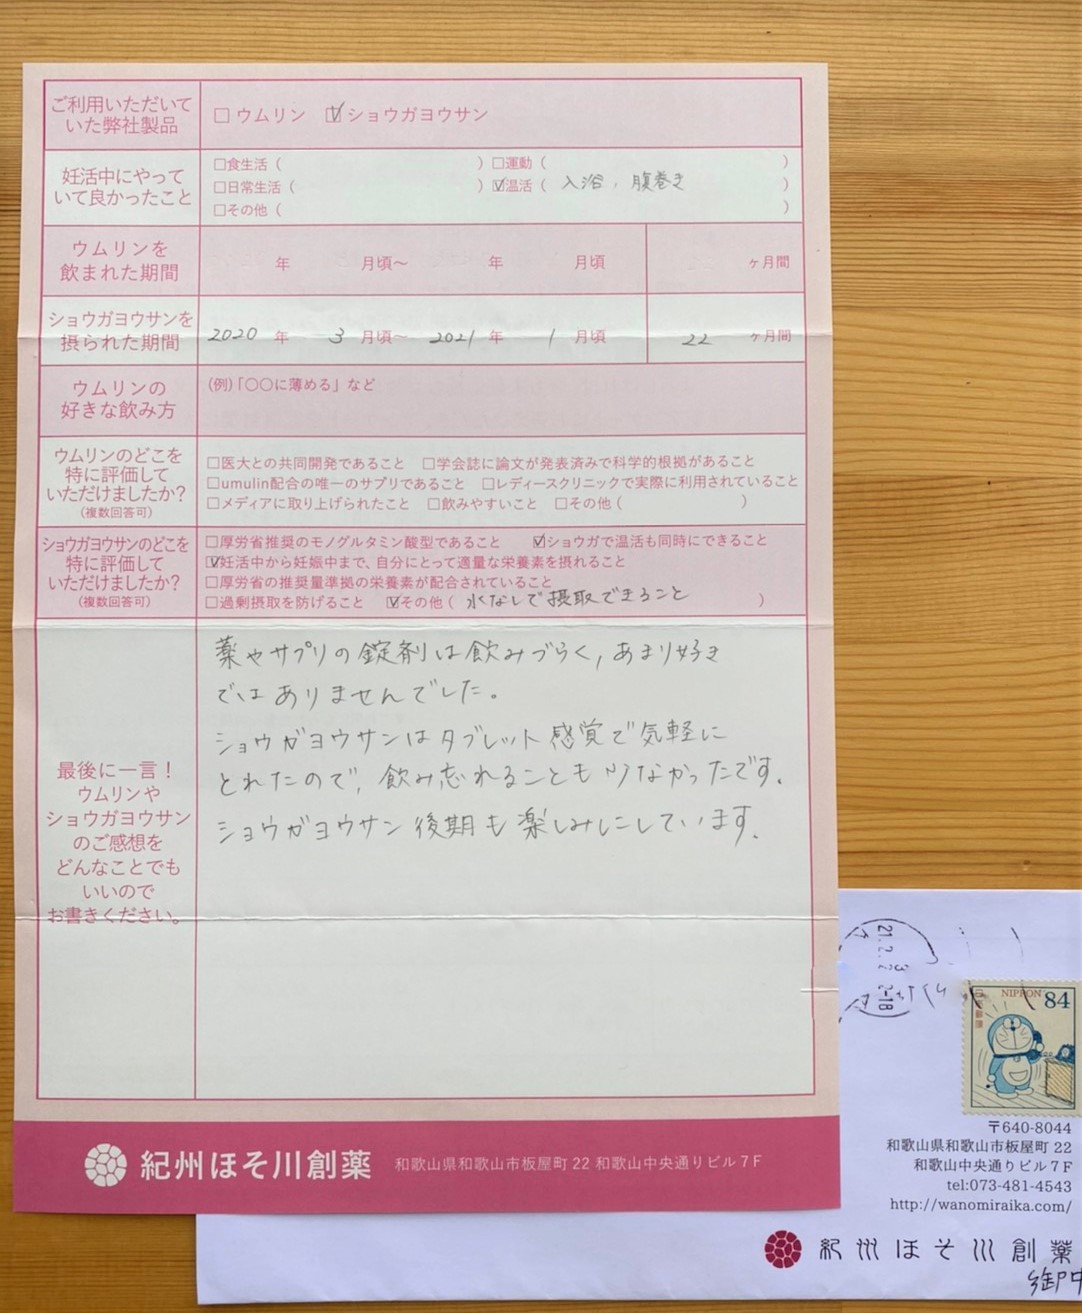 ご利用いただいて
いた弊社製品
□ ウムリン ☑ ショウガヨウサン
妊活中にやって
いて良かったこと
□食生活 ( ) □運動 ( )
□日常生活 ( ) ☑温活 ( 入浴、腹巻き )
□その他 ( )
ウムリンを
飲まれた期間
年 月頃〜 年 月頃 ヶ月間
ショウガヨウサンを
摂られた期間
2020 年 3 月頃〜 2021 年 1 月頃 22 ヶ月間
ウムリンの
好きな飲み方
(例)「〇〇に薄める」など
ウムリンのどこを
特に評価して
いただけましたか?
(複数回答可)
□医大との共同開発であること □学会誌に論文が発表済みで科学的根拠があること
□umulin配合の唯一のサプリであること □レディースクリニックで実際に利用されていること
□メディアに取り上げられたこと □飲みやすいこと □その他 ( )
ショウガヨウサンのどこを
特に評価して
いただけましたか?
(複数回答可)
□厚労省推奨のモノグルタミン酸型であること ☑ショウガで温活も同時にできること
☑妊活中から妊娠中まで、自分にとって適量な栄養素を摂れること
□厚労省の推奨量準拠の栄養素が配合されていること
□過剰摂取を防げること ☑その他 ( 水なしで摂取できること )
最後に一言!
ウムリンや
ショウガヨウサン
のご感想を
どんなことでも
いいので
お書きください。
薬やサプリの錠剤は飲みづらく,あまり好き
ではありませんでした。
ショウガヨウサンはタブレット感覚で気軽に
とれたので,飲み忘れることも少なかったです.
ショウガヨウサン後期も楽しみにしています.
紀州ほそ川創薬 和歌山県和歌山市板屋町 22 和歌山中央通りビル7F
21.2.2
12-18
NIPPON 84
日本郵便
〒640-8044
和歌山県和歌山市板屋町 22
和歌山中央通りビル7F
tel:073-481-4543
http://wanomiraika.com/
紀州ほそ川創薬
御中